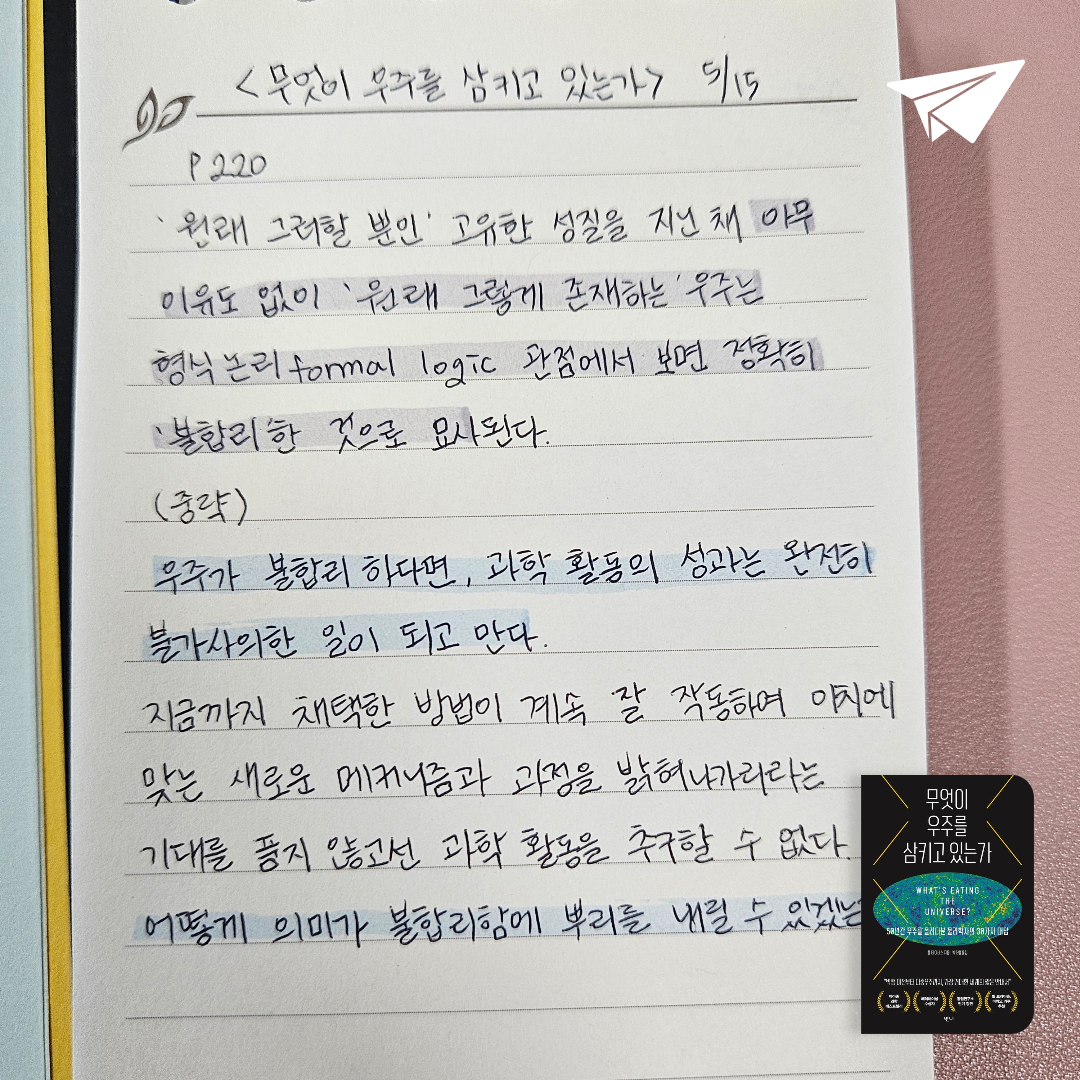 <무엇이 우주를 삼키고 있는가> 5/15
P 220
'원래 그러할 뿐인' 고유한 성질을 지닌 채 아무
이유도 없이 '원래 그렇게 존재하는' 우주는
형식논리 formal logic 관점에서 보면 정확히
'불합리'한 것으로 묘사된다.
(중략)
우주가 불합리 하다면, 과학 활동의 성과는 완전히
불가사의한 일이 되고 만다.
지금까지 채택한 방법이 계속 잘 작동하며 이치에
맞는 새로운 메커니즘과 과정을 밝혀나가리라는
기대를 품지 않고선 과학 활동을 추구할 수 없다.
어떻게 의미가 불합리함에 뿌리를 내릴 수 있겠는
무엇이
우주를
삼키고 있는가
WHAT'S EATING
THE
UNIVERSE?
50년간 우주를 올려다본 물리학자의 30가지 대답